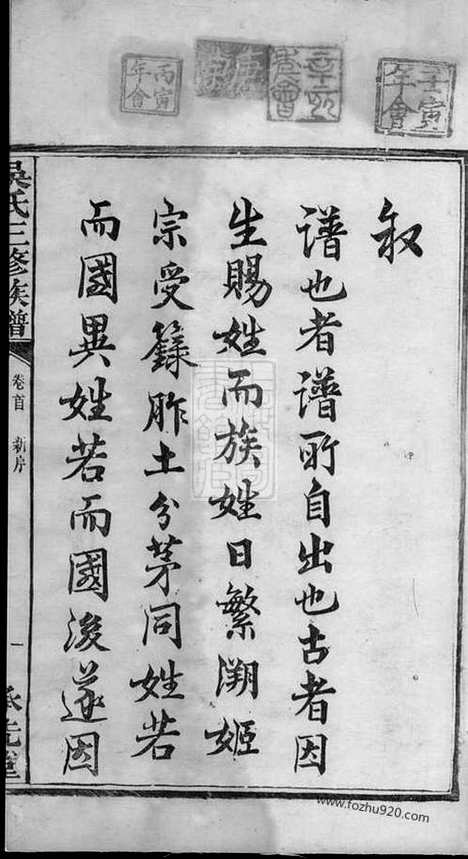 壬寅年會
辛亥年會
丙寅年會
敘
譜也者譜所自出也古者因
生賜姓而族姓日繁溯姬
宗受籙胙土分茅同姓若
而國異姓若而國後遂因
吳氏三修族譜
卷首 新序
一
www.fozhu920.com